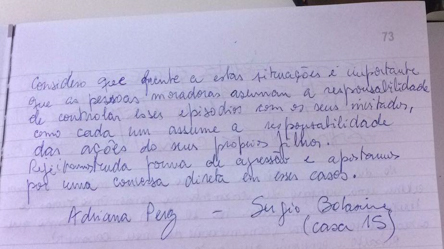 73
Considero que frente a estas situações é importante
que as pessoas moradoras assumam a responsabilidade
de controlar esses episodios com os seus invitados,
como cada um assume a responsabilidade
das ações do seus própios filhos.
Rejeitamos toda forma de agressão e apostamos
por uma conversa direta em esses casos.
Adriana Perez - Sergio
(casa 15)